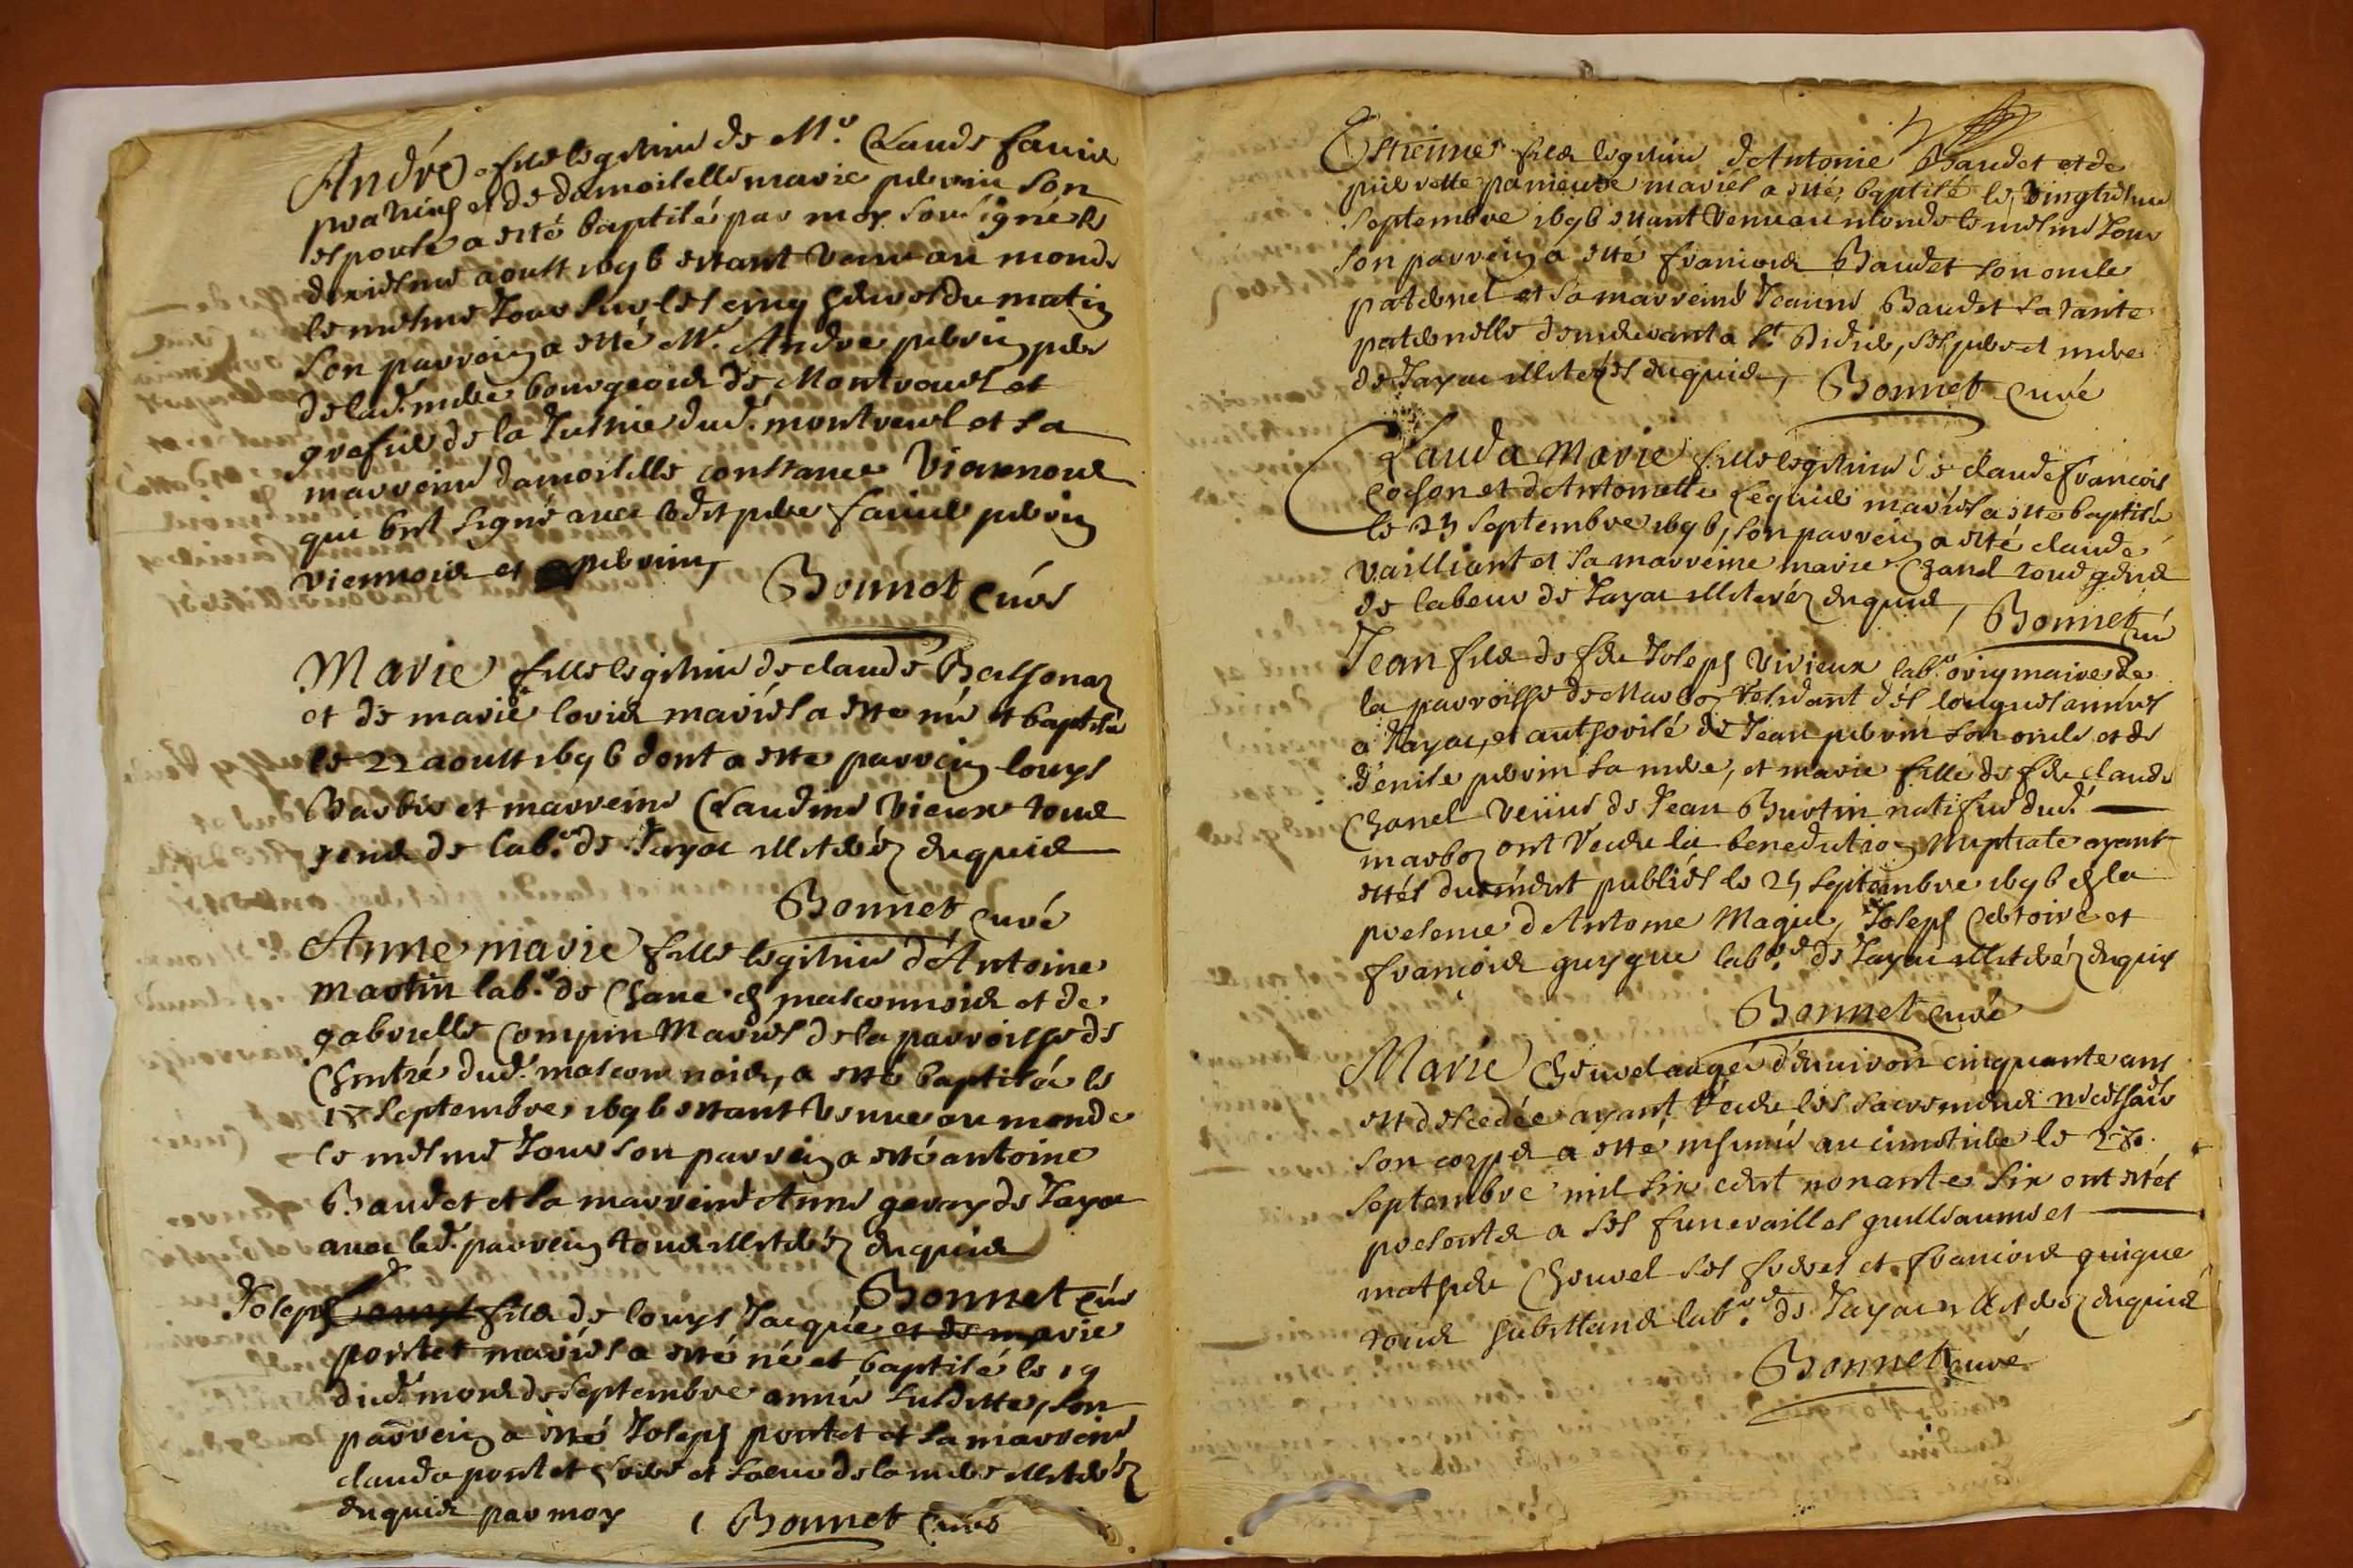 André fils legitime de Mr. Claude favier
praticien et de damoiselle marie perrin son
espouse a esté baptisé par moy soubsigné le
dixiesme aoust 1696 estant venu au monde
le mesme Jour sur les cinq heures du matin
son parrein a esté Mr. André perrin pere
de lad. mere bourgeois de Montrevel et
grefier de la Justice dud. montrevel et sa
marreine damoiselle constance Viennois
qui ont signé avec ledit pere favier perrin
viennois et perrin,
Bonnet curé
Marie fille legitime de claude
et de marie loris mariés a esté née et baptisée
le 22 aoust 1696 dont a esté parrein louys
Barbier et marreine Claudine Vieux tous
gens de lab.r de Jayac illiterés enquis
Bonnet curé
Anne marie fille legitime d'Antoine
martin lab.r de Chane en masconnois et de
gabrielle Compin Mariés de la parroisse de
Chentré dud. masconnois, a esté baptisée le
18 septembre 1696 estant venue au monde
le mesme Jour son parrein a esté antoine
Baudet et sa marreine Anne gevay de Jaya
avec led. parrein tous illiterés enquis
Bonnet curé
Joseph fils de louys Jacquie et de marie
pontet mariés a esté né et baptisé le 19
dud. mois de septembre année susditte, son
parrein a esté Joseph pontet et sa marreine
clauda pontet frere et soeur de la mere illiterés
enquis par moy Bonnet curé
Estienne fils legitime d'Antonie Baudet et de
pierrette mariés a esté baptisé le vingtiesme
septembre 1696 estant venu au monde le mesme Jour
son parrein a esté francois Baudet son oncle
paternel et sa marreine Jeanne Baudet sa tante
paternelle demeurant a St. Didier, ses pere et mere
de Jayac illiterés enquis, Bonnet curé
Clauda Marie fille legitime de claude francois
Cochon et d'Antoinette Lequier mariés a esté baptisée
le 23 septembre 1696, son parrein a esté claude
vailliant et sa marreine marie Chanel tous gens
de labeur de Jayac illiterés enquis, Bonnet curé
Jean fils de feu Joseph Vivieux lab.r originaire de
la parroisse de Marboz residant dés longues années
a Jayac, et authorisé de Jean perrin son oncle et de
denise perrin sa mere, et marie fille de feu claude
Chanel veuve de Jean Burtin natifve dud.
marboz ont receu la benediction Nuptiale ayant
estés dueement publiés le 25 septembre 1696 en la
presence d'Antoine Magie, Joseph Certoire et
francois guygue lab.rs de Jayac illiterés enquis
Bonnet curé
Marie Chevrel augée d'environ cinquante ans
est descedée ayant receu les sacremens necessaires
son corps a esté inhumé au cimetiere le 28
septembre mil six cent nonante six ont estés
presents a ses funerailles guilleaume et
mathieu Chevrel ses freres et francois guigue
tous habitans lab.rs de Jayac illiterés enquis
Bonnet curé